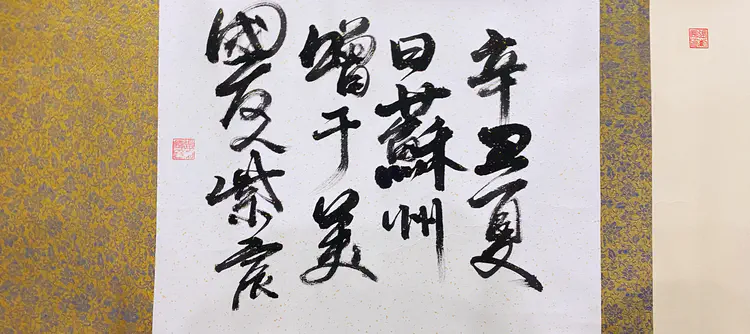 辛丑夏
日蘇州
贈于美
國友人紫宸